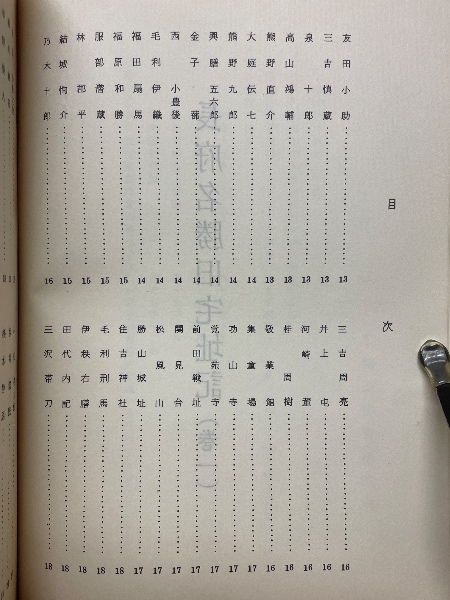 目次
友田小助 13
三吉慎蔵 13
泉十郎 13
高山鴻輔 13
熊野直介 13
大庭伝七 14
熊野九郎 14
興膳五六郎 14
金子蔀 14
西小豊後 14
毛利伊織 14
福田扇馬 14
福原和勝 15
服部潜蔵 15
林郡平 15
結城恂介 15
乃木十郎 16
三吉周亮 16
井上屯 16
河崎董 16
桂周樹 16
敬業館 16
集童場 16
功山寺 16
覚苑寺 16
前田戦址 17
関見台 17
松風山 17
勝山城址 17
住吉神社 18
毛利刑馬 18
伊秩右膳 18
田代内記 18
三沢帯刀 18
長府名勝旧宅址記（巻一）